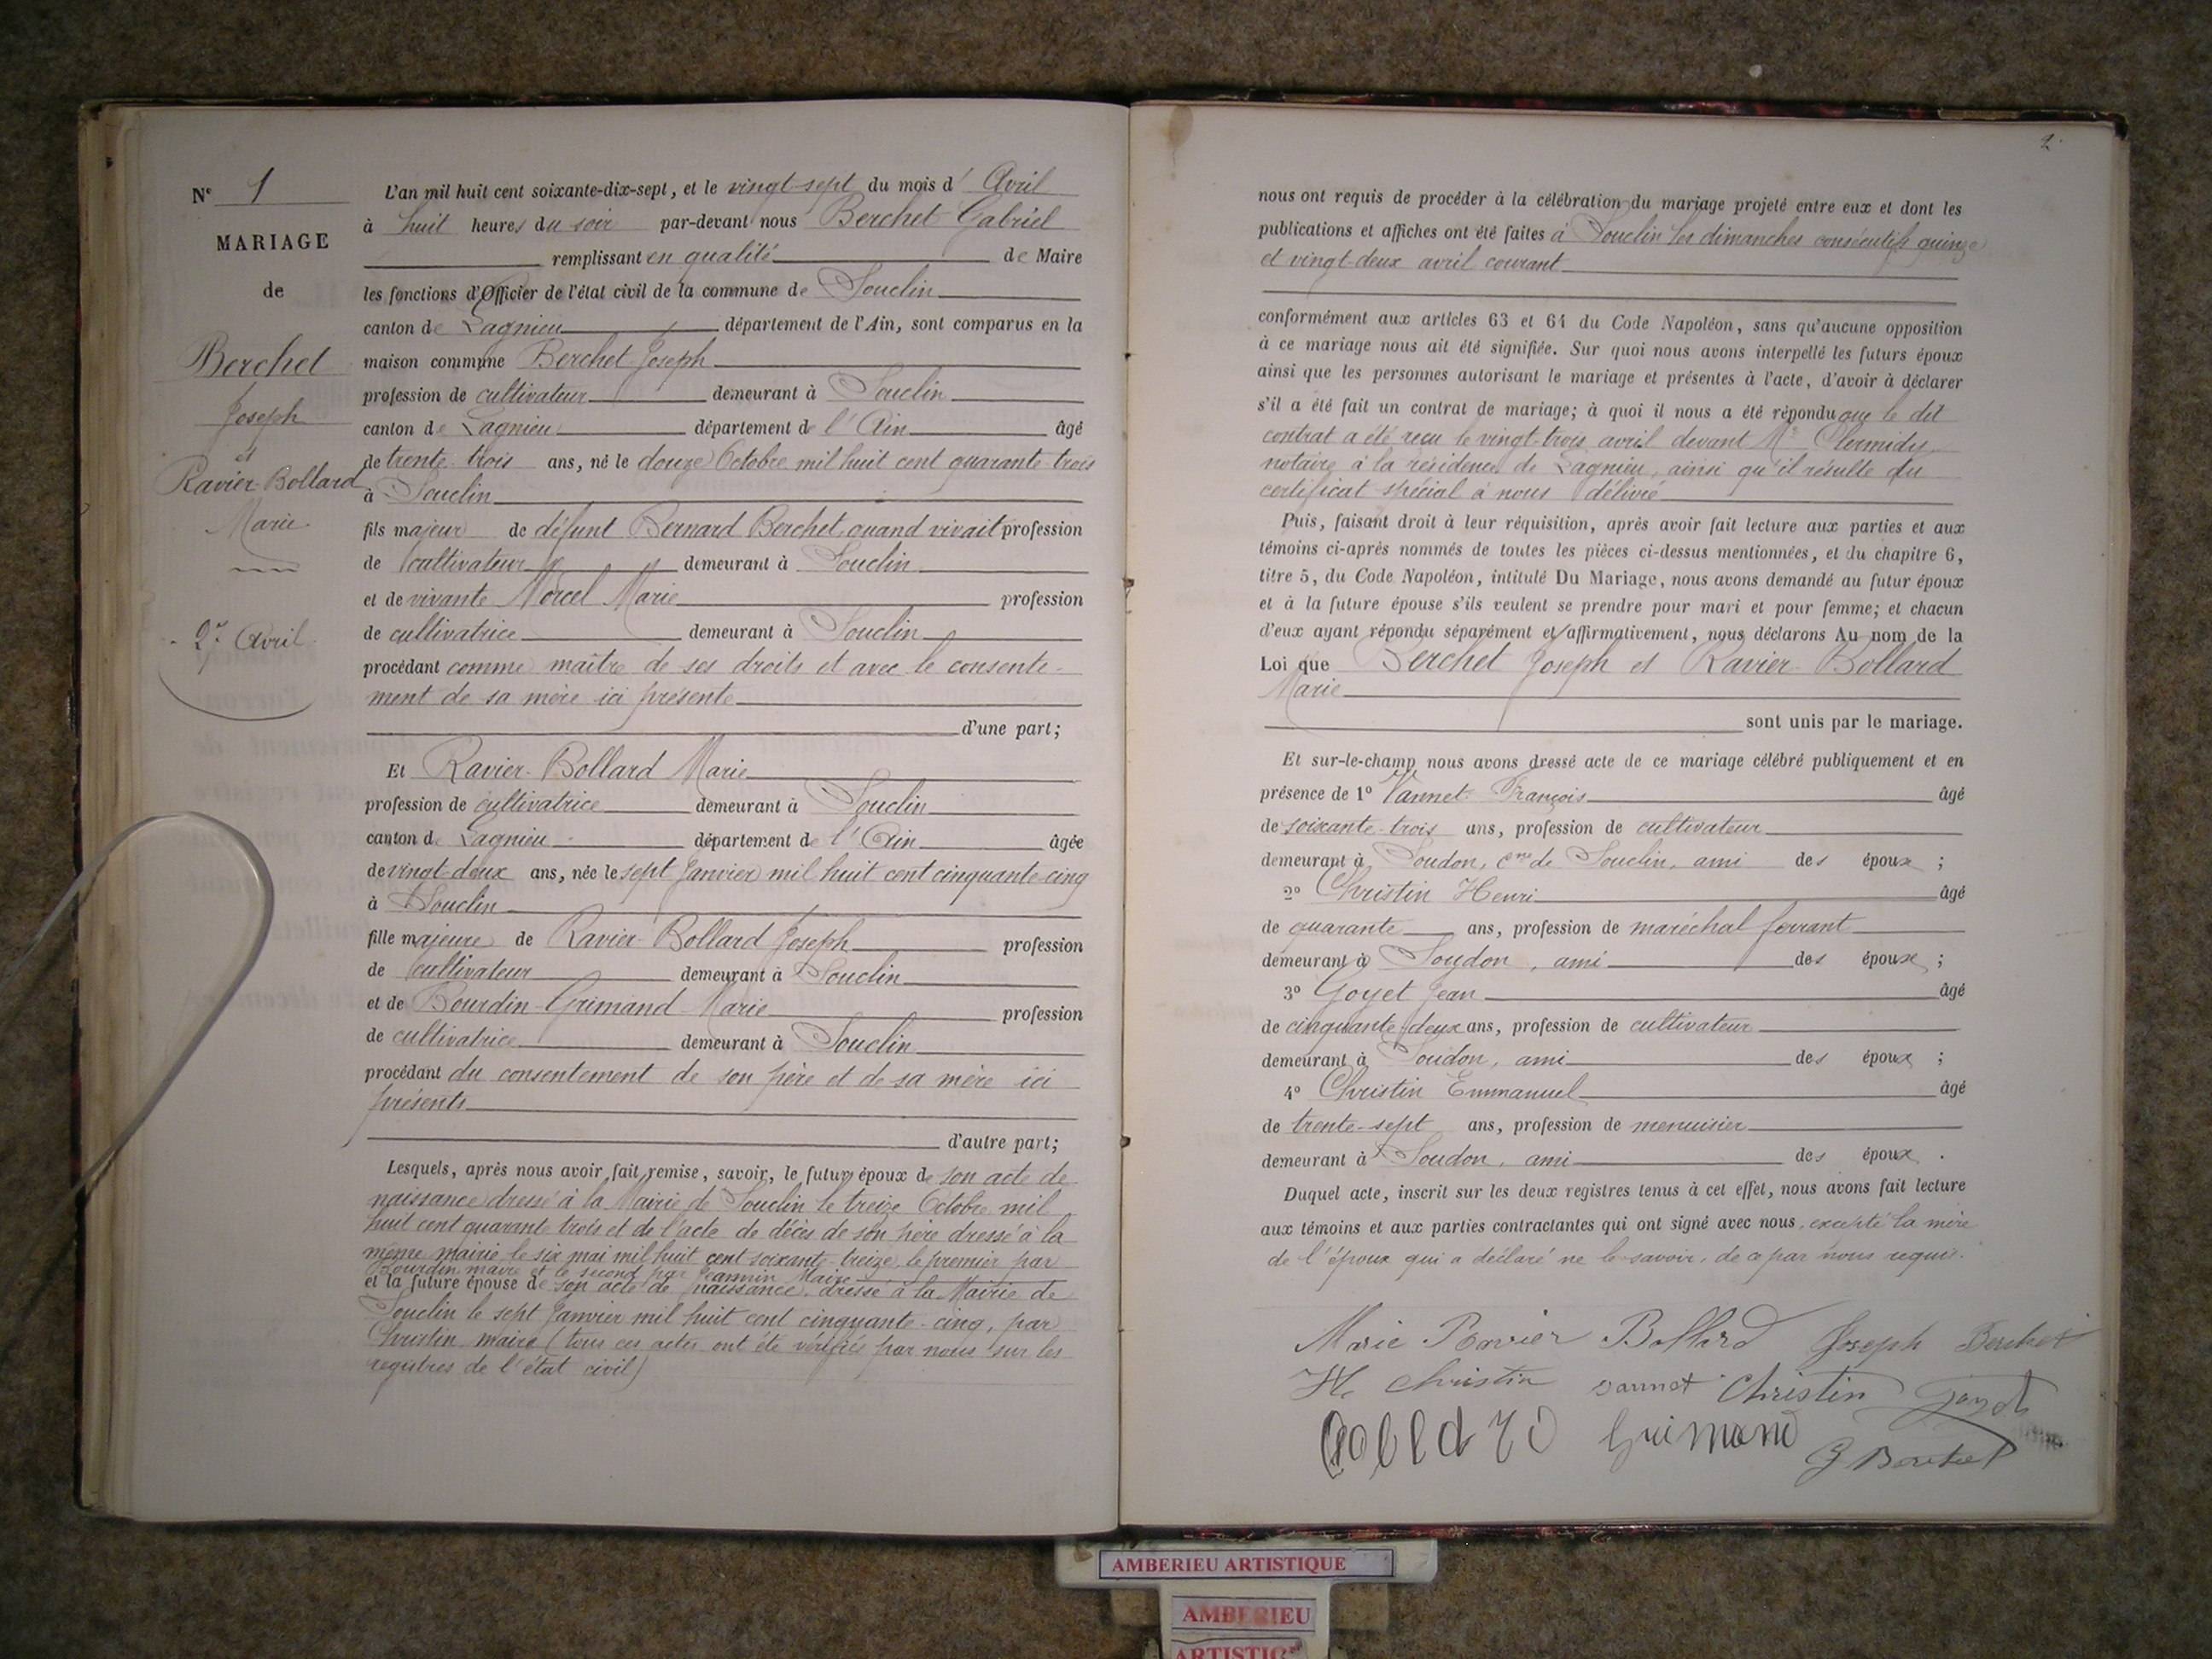 Nº 1
MARIAGE
de
Berchet
Joseph
et
Ravier-Bollard
Marie
27 Avril
L'an mil huit cent soixante-dix-sept, et le vingt-sept du mois d' Avril
à huit heures du soir par-devant nous Berchet Gabriel
remplissant en qualité de Maire
les fonctions d'Officier de l'état civil de la commune de Souclin
canton de Lagnieu département de l'Ain, sont comparus en la
maison commune Berchet Joseph
profession de cultivateur demeurant à Souclin
canton de Lagnieu département de l'Ain âgé
de trente-trois ans, né le douze Octobre mil huit cent quarante trois
à Souclin
fils majeur de défunt Bernard Berchet quand vivait profession
de cultivateur demeurant à Souclin
et de vivante Morcel Marie profession
de cultivatrice demeurant à Souclin
procédant comme maître de ses droits et avec le consente-
ment de sa mère ici présente
d'une part;
Et Ravier-Bollard Marie
profession de cultivatrice demeurant à Souclin
canton de Lagnieu département de l'Ain âgée
de vingt-deux ans, née le sept Janvier mil huit cent cinquante-cinq
à Souclin
fille majeure de Ravier-Bollard Joseph profession
de cultivateur demeurant à Souclin
et de Bourdin-Grimand Marie profession
de cultivatrice demeurant à Souclin
procédant du consentement de son père et de sa mère ici
présents
d'autre part;
Lesquels, après nous avoir fait remise, savoir, le futur époux de son acte de
naissance dressé à la Mairie de Souclin le treize Octobre mil
huit cent quarante trois et de l'acte de décès de son père dressé à la
même mairie le six mai mil huit cent soixante treize, le premier par
Bourdin maire et le second par Jeannin Maire
et la future épouse de son acte de naissance, dressé à la Mairie de
Souclin le sept Janvier mil huit cent cinquante-cinq, par
Christin maire (tous ces actes ont été vérifiés par nous sur les
registres de l'état civil)
2.
nous ont requis de procéder à la célébration du mariage projeté entre eux et dont les
publications et affiches ont été faites à Souclin les dimanches consécutifs quinze
et vingt-deux avril courant
conformément aux articles 63 et 64 du Code Napoléon, sans qu'aucune opposition
à ce mariage nous ait été signifiée. Sur quoi nous avons interpellé les futurs époux
ainsi que les personnes autorisant le mariage et présentes à l'acte, d'avoir à déclarer
s'il a été fait un contrat de mariage; à quoi il nous a été répondu que le dit
contrat a été reçu le vingt-trois avril devant Me
notaire à la résidence de Lagnieu, ainsi qu'il résulte du
certificat spécial à nous délivré
Puis, faisant droit à leur réquisition, après avoir fait lecture aux parties et aux
témoins ci-après nommés de toutes les pièces ci-dessus mentionnées, et du chapitre 6,
titre 5, du Code Napoléon, intitulé Du Mariage, nous avons demandé au futur époux
et à la future épouse s'ils veulent se prendre pour mari et pour femme; et chacun
d'eux ayant répondu séparément et affirmativement, nous déclarons Au nom de la
Loi que Berchet Joseph et Ravier-Bollard
Marie
sont unis par le mariage.
Et sur-le-champ nous avons dressé acte de ce mariage célébré publiquement et en
présence de 1º Vannet François âgé
de soixante-trois ans, profession de cultivateur
demeurant à Soudon, cne de Souclin, ami des époux ;
2º Christin Henri âgé
de quarante ans, profession de maréchal ferrant
demeurant à Soudon, ami des époux ;
3º Goyet Jean âgé
de cinquante-deux ans, profession de cultivateur
demeurant à Soudon, ami des époux ;
4º Christin Emmanuel âgé
de trente-sept ans, profession de menuisier
demeurant à Soudon, ami des époux .
Duquel acte, inscrit sur les deux registres tenus à cet effet, nous avons fait lecture
aux témoins et aux parties contractantes qui ont signé avec nous, excepté la mère
de l'époux qui a déclaré ne le savoir, de ce par nous requis.
Marie Ravier Bollard Joseph Berchet
H. Christin vannet Christin Goyet
Grimand
G Berchet
AMBERIEU ARTISTIQUE
AMBERIEU
ARTISTIQ